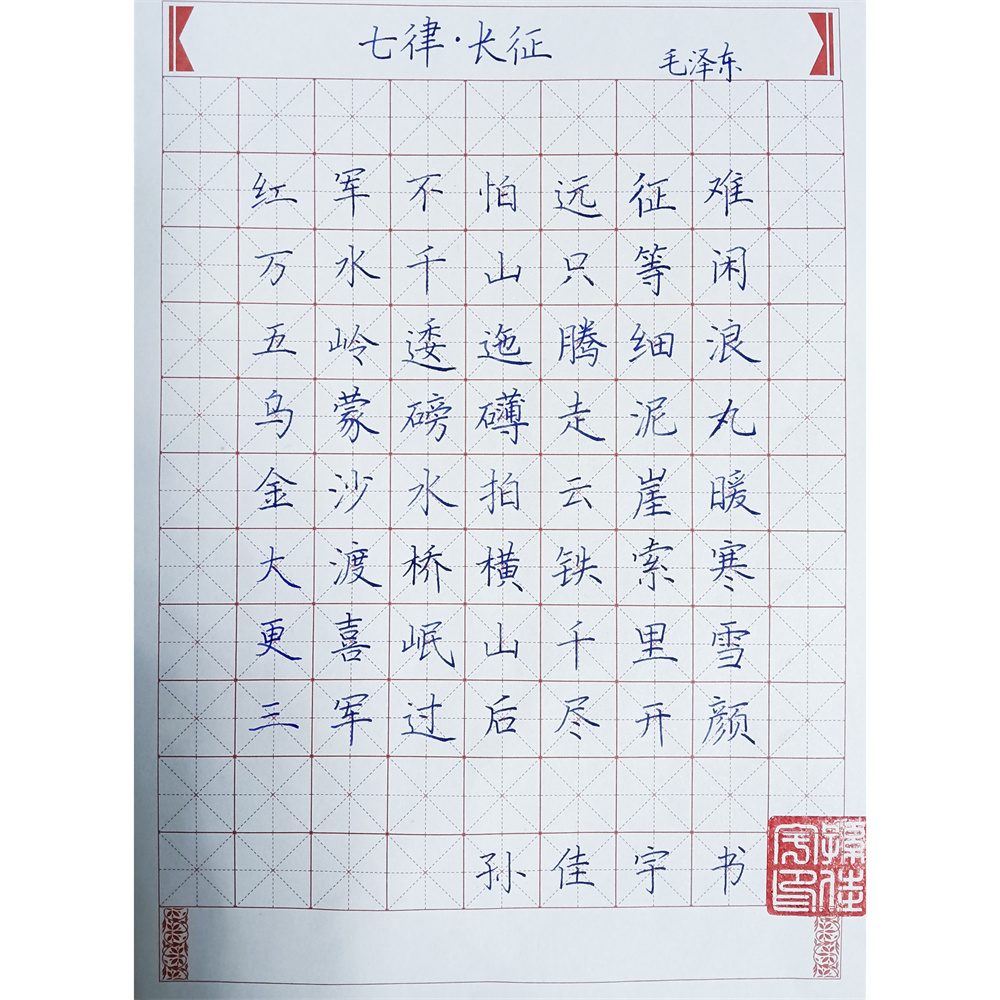 七律·长征
毛泽东
红军不怕远征难
万水千山只等闲
五岭逶迤腾细浪
乌蒙磅礴走泥丸
金沙水拍云崖暖
大渡桥横铁索寒
更喜岷山千里雪
三军过后尽开颜
孙佳宇书
孫佳宇印